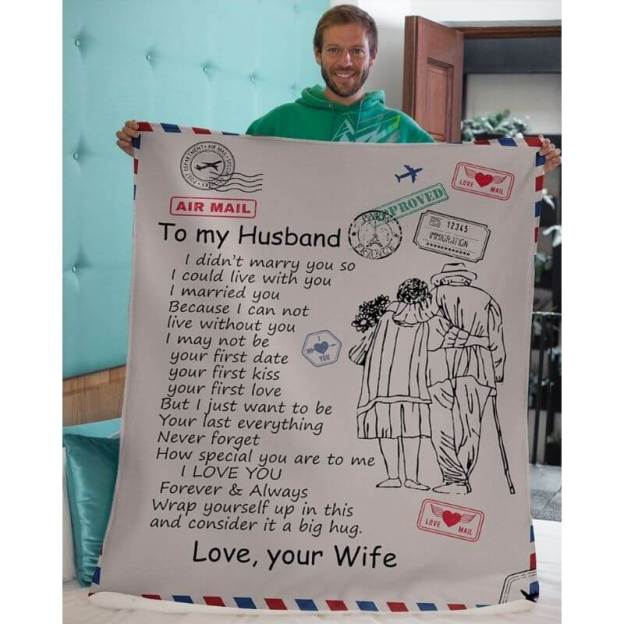 AIR MAIL
LOVE MAIL
PROVED
PARIS
FRANCE
12345
IMMIGRATION
To my Husband
I didn't marry you so
I could live with you
I married you
Because I can not
live without you
I may not be
your first date
your first kiss
your first love
But I just want to be
Your last everything
Never forget
How special you are to me
I LOVE YOU
Forever & Always
Wrap yourself up in this
and consider it a big hug.
I
YOU
LOVE MAIL
Love, your Wife